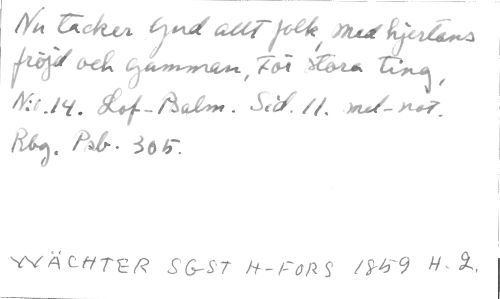 Nu tacker Gud allt folk, med hjertans
fröjd och gamman, För stora ting,
N:o. 14. Lof-Psalm. Sid. 11. mel-not.
Rbg. Psb. 305.
WÄCHTER SGST H-FORS 1859 H. 2.